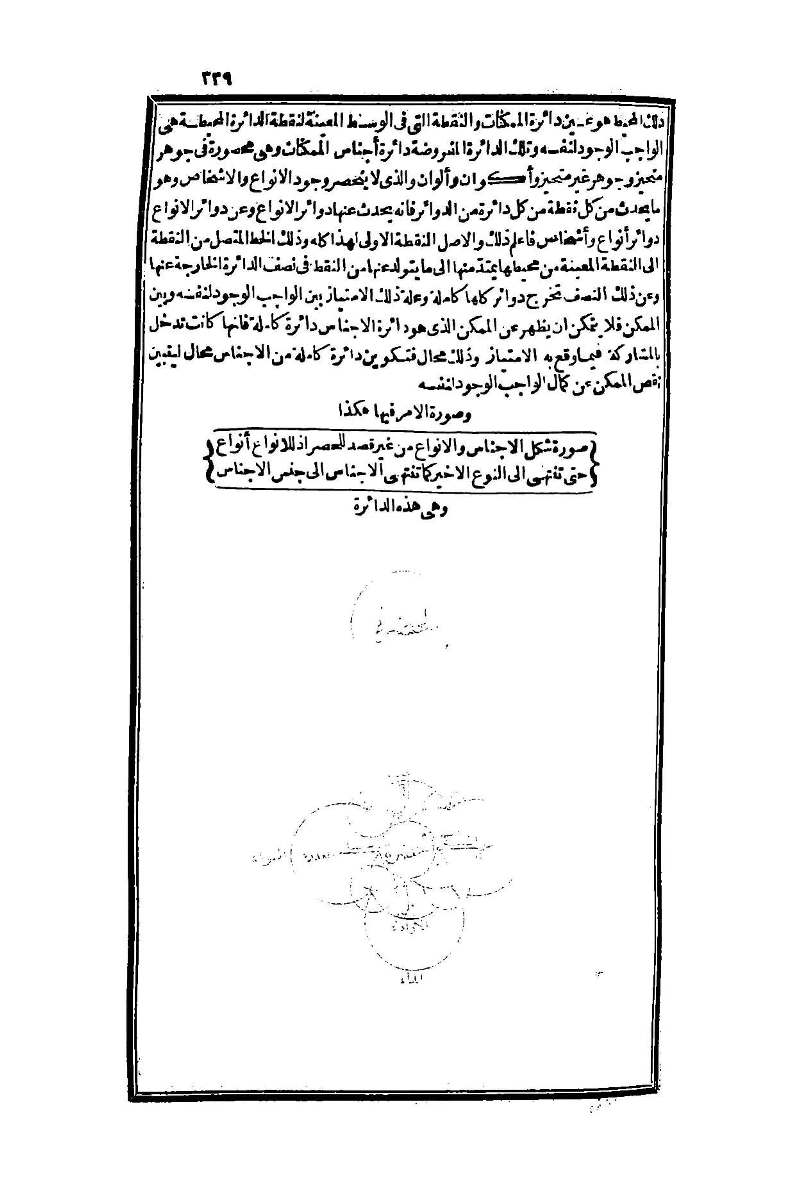 ٣٣٩
ذلك المحيط هو عين دائرة الممكنات والنقطة التى فى الوسط المعينة لنقطة الدائرة المحيطة هى
الواجب الوجود لنفسه وتلك الدائرة المفروضة دائرة أجناس الممكنات وهى محصورة فى جوهر
متحيز وجوهر غير متحيز وأكوان وألوان والذى لا ينحصر وجود الانواع والاشخاص وهو
ما يحدث من كل نقطة من كل دائرة من الدوائر فانه يحدث عنها دوائر الانواع وعن دوائر الانواع
دوائر أنواع وأشخاص فاعلم ذلك والاصل النقطة الاولى لهذا كله وذلك الخط المتصل من النقطة
الى النقطة المعينة من محيطها يمتد منها الى ما يتولد عنها من النقط فى نصف الدائرة الخارجة عنها
وعن ذلك النصف تخرج دوائر كلها كاملة وعلة ذلك الامتياز بين الواجب الوجود لنفسه وبين
الممكن فلا يتمكن ان يظهر عن الممكن الذى هو دائرة الاجناس دائرة كاملة فانها كانت تدخل
بالمشاركة فيما وقع به الامتياز وذلك محال فتكوين دائرة كاملة من الاجناس محال ليتبين
نقص الممكن عن كمال الواجب الوجود لنفسه
وصورة الامر فيها هكذا
صورة شكل الاجناس والانواع من غير قصد للحصر اذ للانواع أنواع
حتى تنتهى الى النوع الاخير كما تنتهى الاجناس الى جنس الاجناس
وهى هذه الدائرة